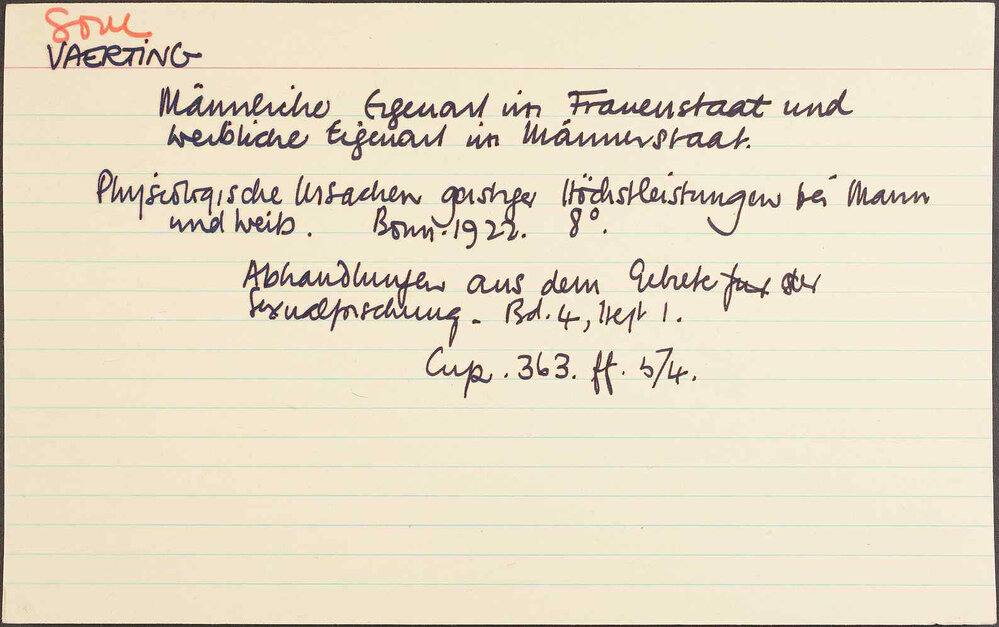 Some
VAERTING
Männliche Eigenart im Frauenstaat und
weibliche Eigenart im Männerstaat.
Physiologische Ursachen geistiger Höchstleistungen bei Mann
und Weib. Bonn. 1922. 8º.
Abhandlungen aus dem Gebiete für der
Sexualforschung. Bd. 4, Heft 1.
Cup. 363. ff. 5/4.